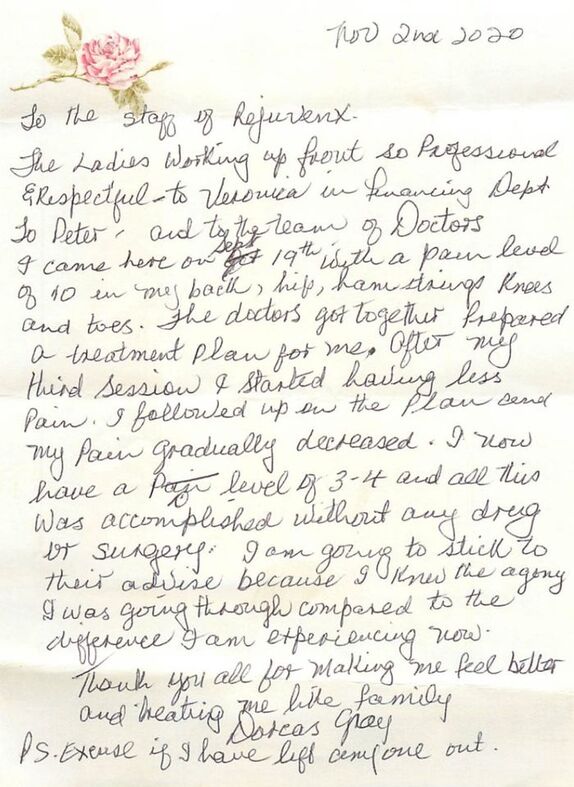 Nov 2nd 2020
To the staff of Rejuvenx.
The Ladies working up front so Professional
& Respectful - to Veronica in financing Dept
To Peter, and to the team of Doctors
I came here on Sept 19th with a pain level
of 10 in my back, hip, hamstrings Knees
and toes. The doctors got together Prepared
a treatment Plan for me. After my
third Session I started having less
Pain. I followed up on the Plan and
my Pain gradually decreased. I now
have a Pain level of 3-4 and all this
was accomplished without any drug
or surgery. I am going to stick to
their advise because I Knew the agony
I was going through compared to the
difference I am experiencing now.
Thank you all for making me feel better
and treating me like family
Dorcas Gray
PS. Excuse if I have left anyone out.